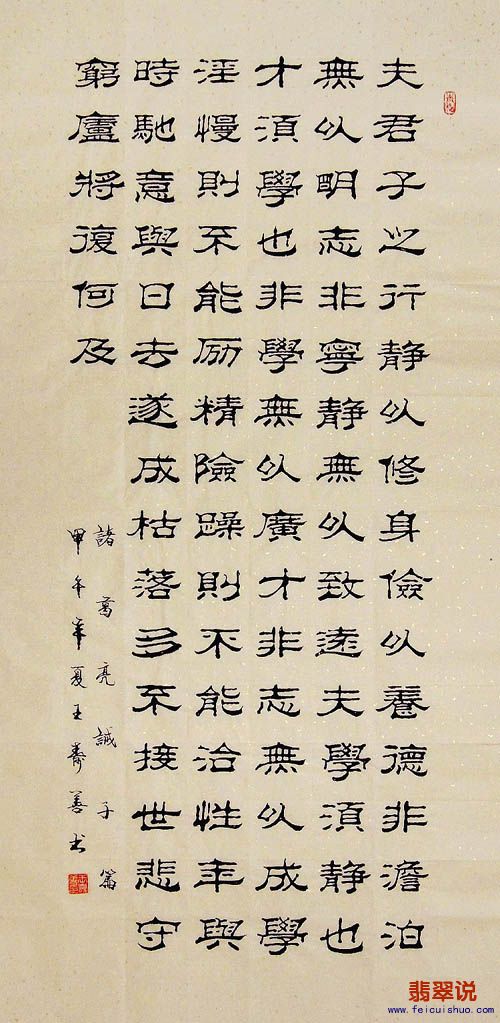 夫君子之行静以修身儉以養德非澹泊
無以明志非寧静無以致遠夫學須静也
才須學也非學無以廣才非志無以成學
淫慢則不能励精險躁則不能治性年與
時馳意與日去遂成枯落多不接世悲守
窮廬將復何及
諸葛亮誡子篇
甲午年夏王壽善书
翡翠说
www.feicuishuo.com